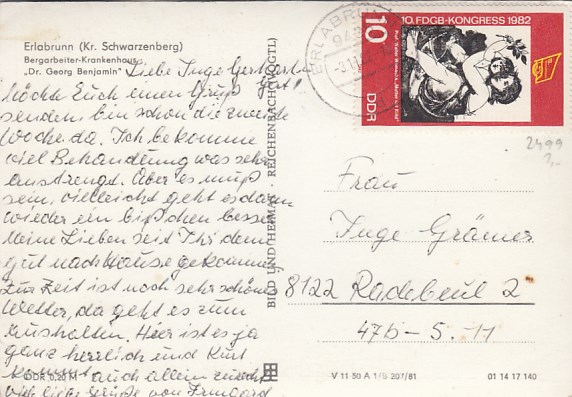 Erlabrunn (Kr. Schwarzenberg)
Bergarbeiter-Krankenhaus
„Dr. Georg Benjamin"
Liebe Inge Gerhard
möchte Euch einen Gruß
senden bin schon die zweite
Woche da. Ich bekomme
viel Behandlung was sehr
anstrengt. Aber es muß
sein, vielleicht geht es dann
wieder ein bißchen besser
Meine Lieben seit Ihr denn
gut nach Hause gekommen
Zur Zeit ist noch sehr schönes
Wetter, da geht es zum
aushalten. Hier ist es ja
ganz herrlich und Kurt
kommt auch allein zurecht
viele liebe Grüße von Irmgard
DDR 0,20 M
BILD UND HEIMAT REICHENBACH (VOGTL)
ERLABRUNN
10. FDGB-KONGRESS 1982
10
DDR
2499
2,-
Frau
Inge Grämer
8122 Radebeul 2
47b-5.11
V 11 50 A 1/B 207/81
01 14 17 140